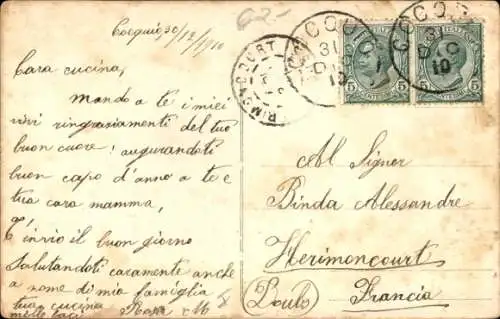 Cocquio, 30/12/910
Cara cucina,
Mando a te i miei
vivi ringraziamenti del tuo
buon cuore! augurandoti
buon capo d'anno a te e
tua cara mamma,
T'invio il buon giorno
Salutandoti caramente anche
a nome di mia famiglia
tua cucina Rosa M
mille baci
HERIMONCOURT
COCQ
31
10
COCQ
10
5 5 5 5
Al Signor
Binda Alessandre
Herimoncourt
(Doubs) Francia